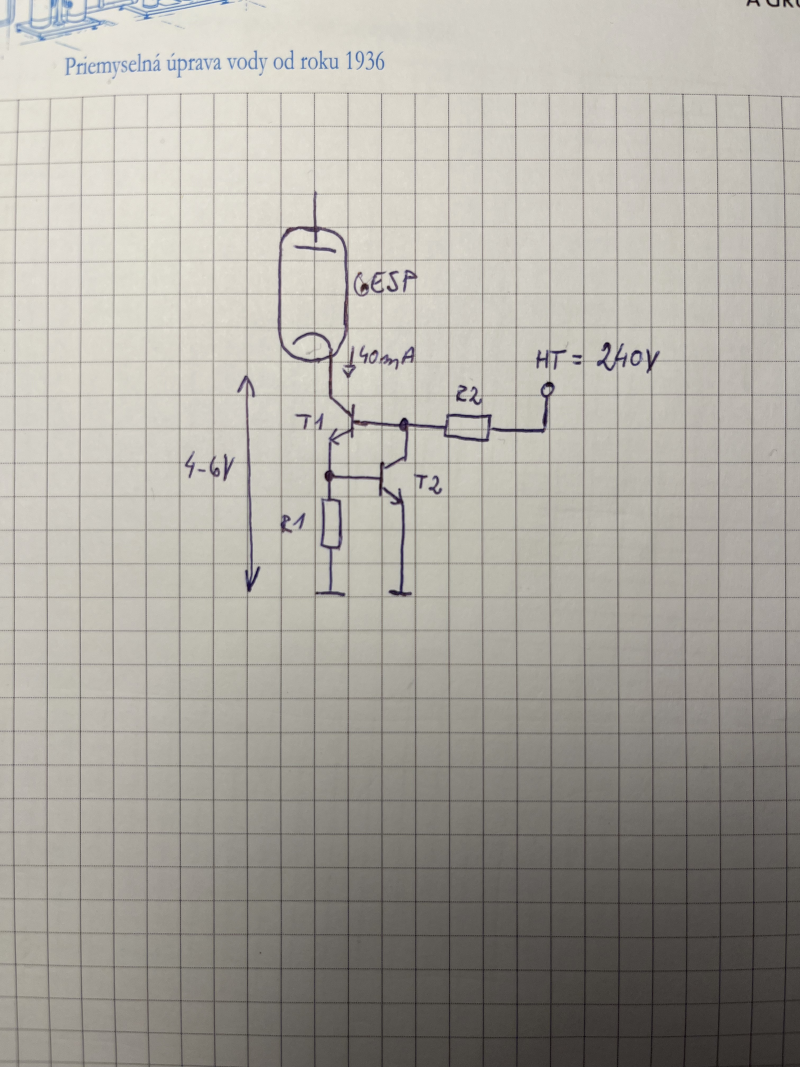 Priemyselná úprava vody od roku 1936
6ESP
40mA
HT = 240V
R2
T1
4-6V
T2
R1